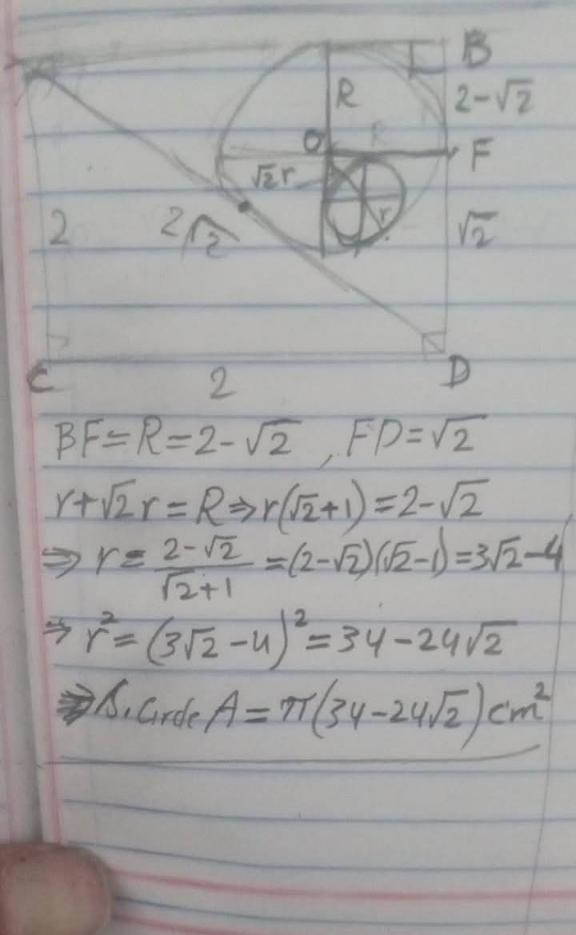 B
R
2-√2
O
F
√2r
r
2
2√2
√2
C
2
D
BF=R=2-√2, FD=√2
r+√2r=R⇒r(√2+1)=2-√2
⇒ r= (2-√2)/(√2+1) =(2-√2)(√2-1)=3√2-4
⇒ r²=(3√2-4)²=34-24√2
⇒ S. Circle A=π(34-24√2)cm²